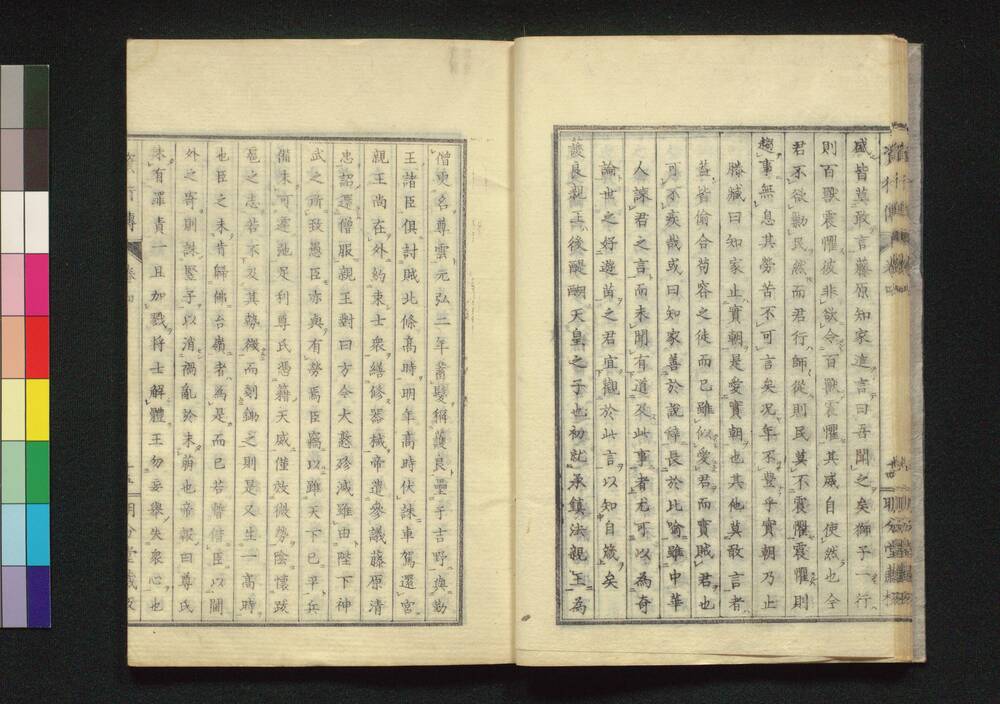 盛皆莫敢言藤原知家進言曰吾聞之矣獅子一行
則百獸震懼彼非欲令百獸震懼其威自使然也今
君不欲勤民然而君行師從則民莫不震懼震懼則
趨事無息其勞苦不可言矣况年不豐乎實朝乃止
滕臧曰知家止實朝是愛實朝也其他莫敢言者
蓋皆偷合苟容之徒而已雖似愛君而實賊君也
可不疾哉或曰知家善於說辭長於比喻雖中華
人諫君之言而未聞有道及此事者尤可以為奇
論世之好遊畋之君宜觀於此言以知自箴矣
護良親王後醍醐天皇之子也初就承鎮法親王為
僧更名尊雲元弘二年蓄髮稱護良壘于吉野與勤
王諸臣俱討賊北條高時明年高時伏誅車駕還宮
親王尚在外約束士衆繕修器械帝遣參議藤原清
忠詔還僧服親王對曰方今大憝殄滅雖由陛下神
武之所致愚臣亦與有勞焉臣竊以雖天下已平兵
備未可遽弛足利尊氏憑藉天威僅效微勞陰懷跋
扈之志若不及其勢微而剗鋤之則是又生一高時
也臣之未肯歸佛台嶺者為是而已若暫借臣以閫
外之寄則誅豎子以消禍亂於未萌也帝報曰尊氏
未有罪責一且加戮將士解體王勿妄舉失衆心也